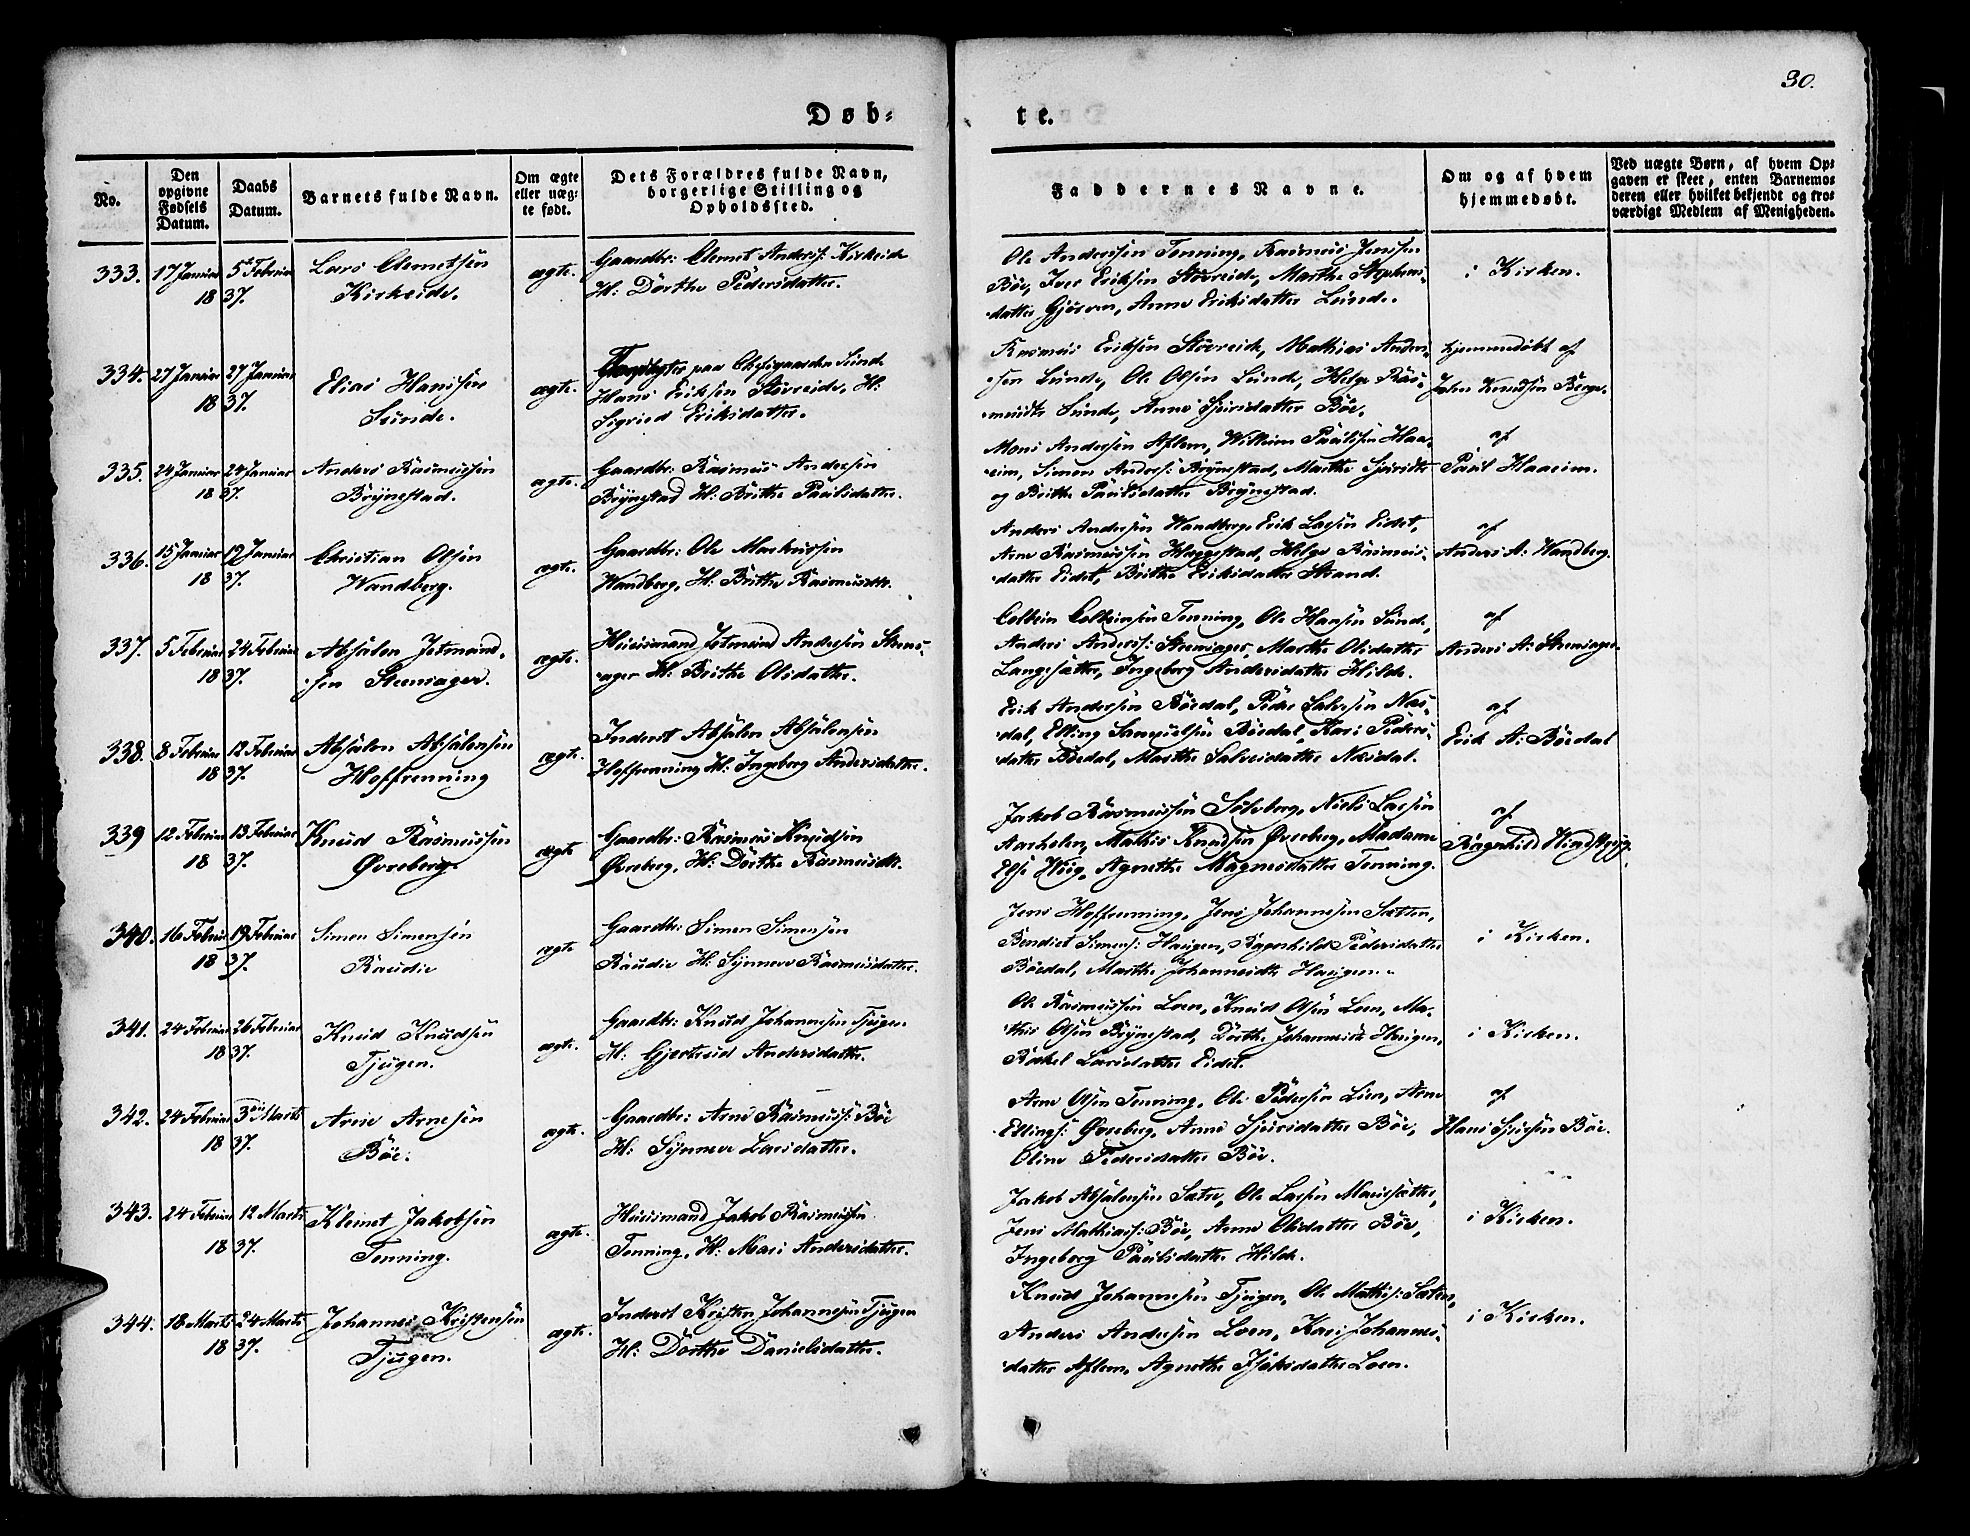 30.
Døb-
te.
No.
Den
opgivne
Fødsels
Datum.
Daabs
Datum.
Barnets fulde Navn.
Om ægte
eller uæg-
te født.
Dets Forældres fulde Navn,
borgerlige Stilling og
Opholdssted.
Faddernes Navne.
Om og af hvem
hjemmedøbt.
Ved uægte Børn, af hvem Op-
gaven er skeet, enten Barnemo-
deren eller hvilket bekjendt og tro-
værdigt Medlem af Menigheden.
333. 17 Januar 5te Februar
18 37.
Lars Clemetsen
Kirkeide.
ægte.
Gaardbr: Clemet Anders: Kirkeide
H: Dörthe Pedersdatter.
Ole Anderssen Tenning, Rasmus Jenssen
Böe, Iver Eriksen Störreide, Marthe Stephens-
datter Gjörven, Anne Eriksdatter Lunde.
i Kirken.
334. 27 Januar 27 Januar
18 37.
Elias Hanssen
Sunde.
ægte.
paa Sunde
Hans Eriksen Störreide, H:
Sigried Eriksdatter.
Rasmus Eriksen Störreide, Mathias Anders-
sen Lunde, Ole Olsen Lunde, Helge Ras-
musdtr Sunde, Anne Sjursdatter Böe.
hjemmedøbt af
John Knudsen Berge.
335. 24 Januar 24 Januar
18 37.
Anders Rasmussen
Brynestad.
ægte.
Gaardbr: Rasmus Andersen
Brynestad H: Brithe Paulsdatter.
Mons Andersen Aflem, Willum Paulsen Haa-
eim, Simon Anders: Brynestad, Marthe Sjursdtr
og Brithe Paulsdatter Brynestad.
af
Paul Haaeim.
336. 15 Januar 19 Januar
18 37.
Christian Olsen
Wandberg.
ægte.
Gaardbr: Ole Markussen
Wandberg, H: Brithe Rasmusdtr.
Anders Andersen Wandberg, Erik Lassen Eidet,
Arne Rasmussen Haggestad, Helge Rasmus-
datter Eidet, Brithe Eriksdatter Strand.
af
Anders A: Wandberg.
337. 5 Februar 24 Februar
18 37.
Absalon Jetmund-
sen Steensager.
ægte.
Huusmand Jetmund Andersen Steens-
ager H: Brithe Olsdatter.
Colbein Colbeinsen Tenning, Ole Hansen Sunde,
Anders Anders: Steensager, Marthe Olsdatter
Langesæter, Ingeborg Andersdatter Hilde.
af
Anders A: Steensager.
338. 8 Februar 12 Februar
18 37.
Absalon Absalonsen
Hoffrenning
ægte.
Inderst Absalon Absalonsen
Hoffrenning H: Ingeborg Andersdatter.
Erik Andersen Böedal, Peder Salvesen Næs-
dal, Elling Samuelsen Böedal, Kari Peders-
datter Böedal, Marthe Salvesdatter Næsdal.
af
Erik A: Böedal
339 12 Februar 13 Februar
18 37.
Knud Rasmussen
Øvreberg.
ægte
Gaardbr: Rasmus Knudsen
Øvreberg, H: Dörthe Rasmusdtr.
Jakob Rasmussen Solvberg, Niels Lassen
Aarholen, Mathis Knudsen Øvreberg, Madame
Else Krüg, Agnethe Magnusdatter Tenning.
af
Ragnhild
340. 16 Februar 19 Februar
18 37.
Simon Simensen
Raudie
ægte
Gaardbr: Simon Simensen
Raudie H: Synneve Rasmusdatter.
Jens Hoffrenning, Jens Johannesen Sætren,
Bendict Simens: Haugen, Ragnhild Pedersdatter
Böedal, Marthe Johannesdtr Haugen.
i Kirken.
341. 24 Februar 26 Februar
18 37.
Knud Knudsen
Tjugen.
ægte.
Gaardbr: Knud Johannesen Tjugen
H: Gjertrud Andersdatter.
Ole Rasmussen Loen, Knud Olsen Loen, Ma-
this Olsen Brynestad, Dörthe Johannesdtr Haugen,
Rakel Larsdatter Eidet.
i Kirken.
342. 24 Februar 3die Marts
18 37.
Arne Arnesen
Böe.
ægte.
Gaardbr: Arne Rasmuss: Böe
H: Synneve Larsdatter.
Arne Olsen Tenning, Ole Pedersen Lien, Arne
Ellings: Øvreberg, Anne Sjursdatter Böe,
Oline Pedersdatter Böe.
af
Hans Sjursen Böe.
343. 24 Februar 12 Marts
18 37.
Klemet Jakobsen
Tenning.
ægte.
Huusmand Jakob Rasmussen
Tenning, H: Mari Andersdatter.
Jakob Absalonsen Sætre, Ole Lassen Maursætter,
Jens Mathias: Böe, Anne Olsdatter Böe,
Ingeborg Paulsdatter Hilde.
i Kirken.
344. 18 Marts 24 Marts
18 37.
Johannes Kristensen
Tjugen.
ægte.
Inderst Kristen Johannesen Tjugen
H: Dorthe Danielsdatter.
Knud Johannesen Tjugen, Ole Mathis: Sætren,
Anders Andersen Loen, Kari Johannes-
datter Aflem, Agnethe Isaksdatter Loen.
i Kirken.